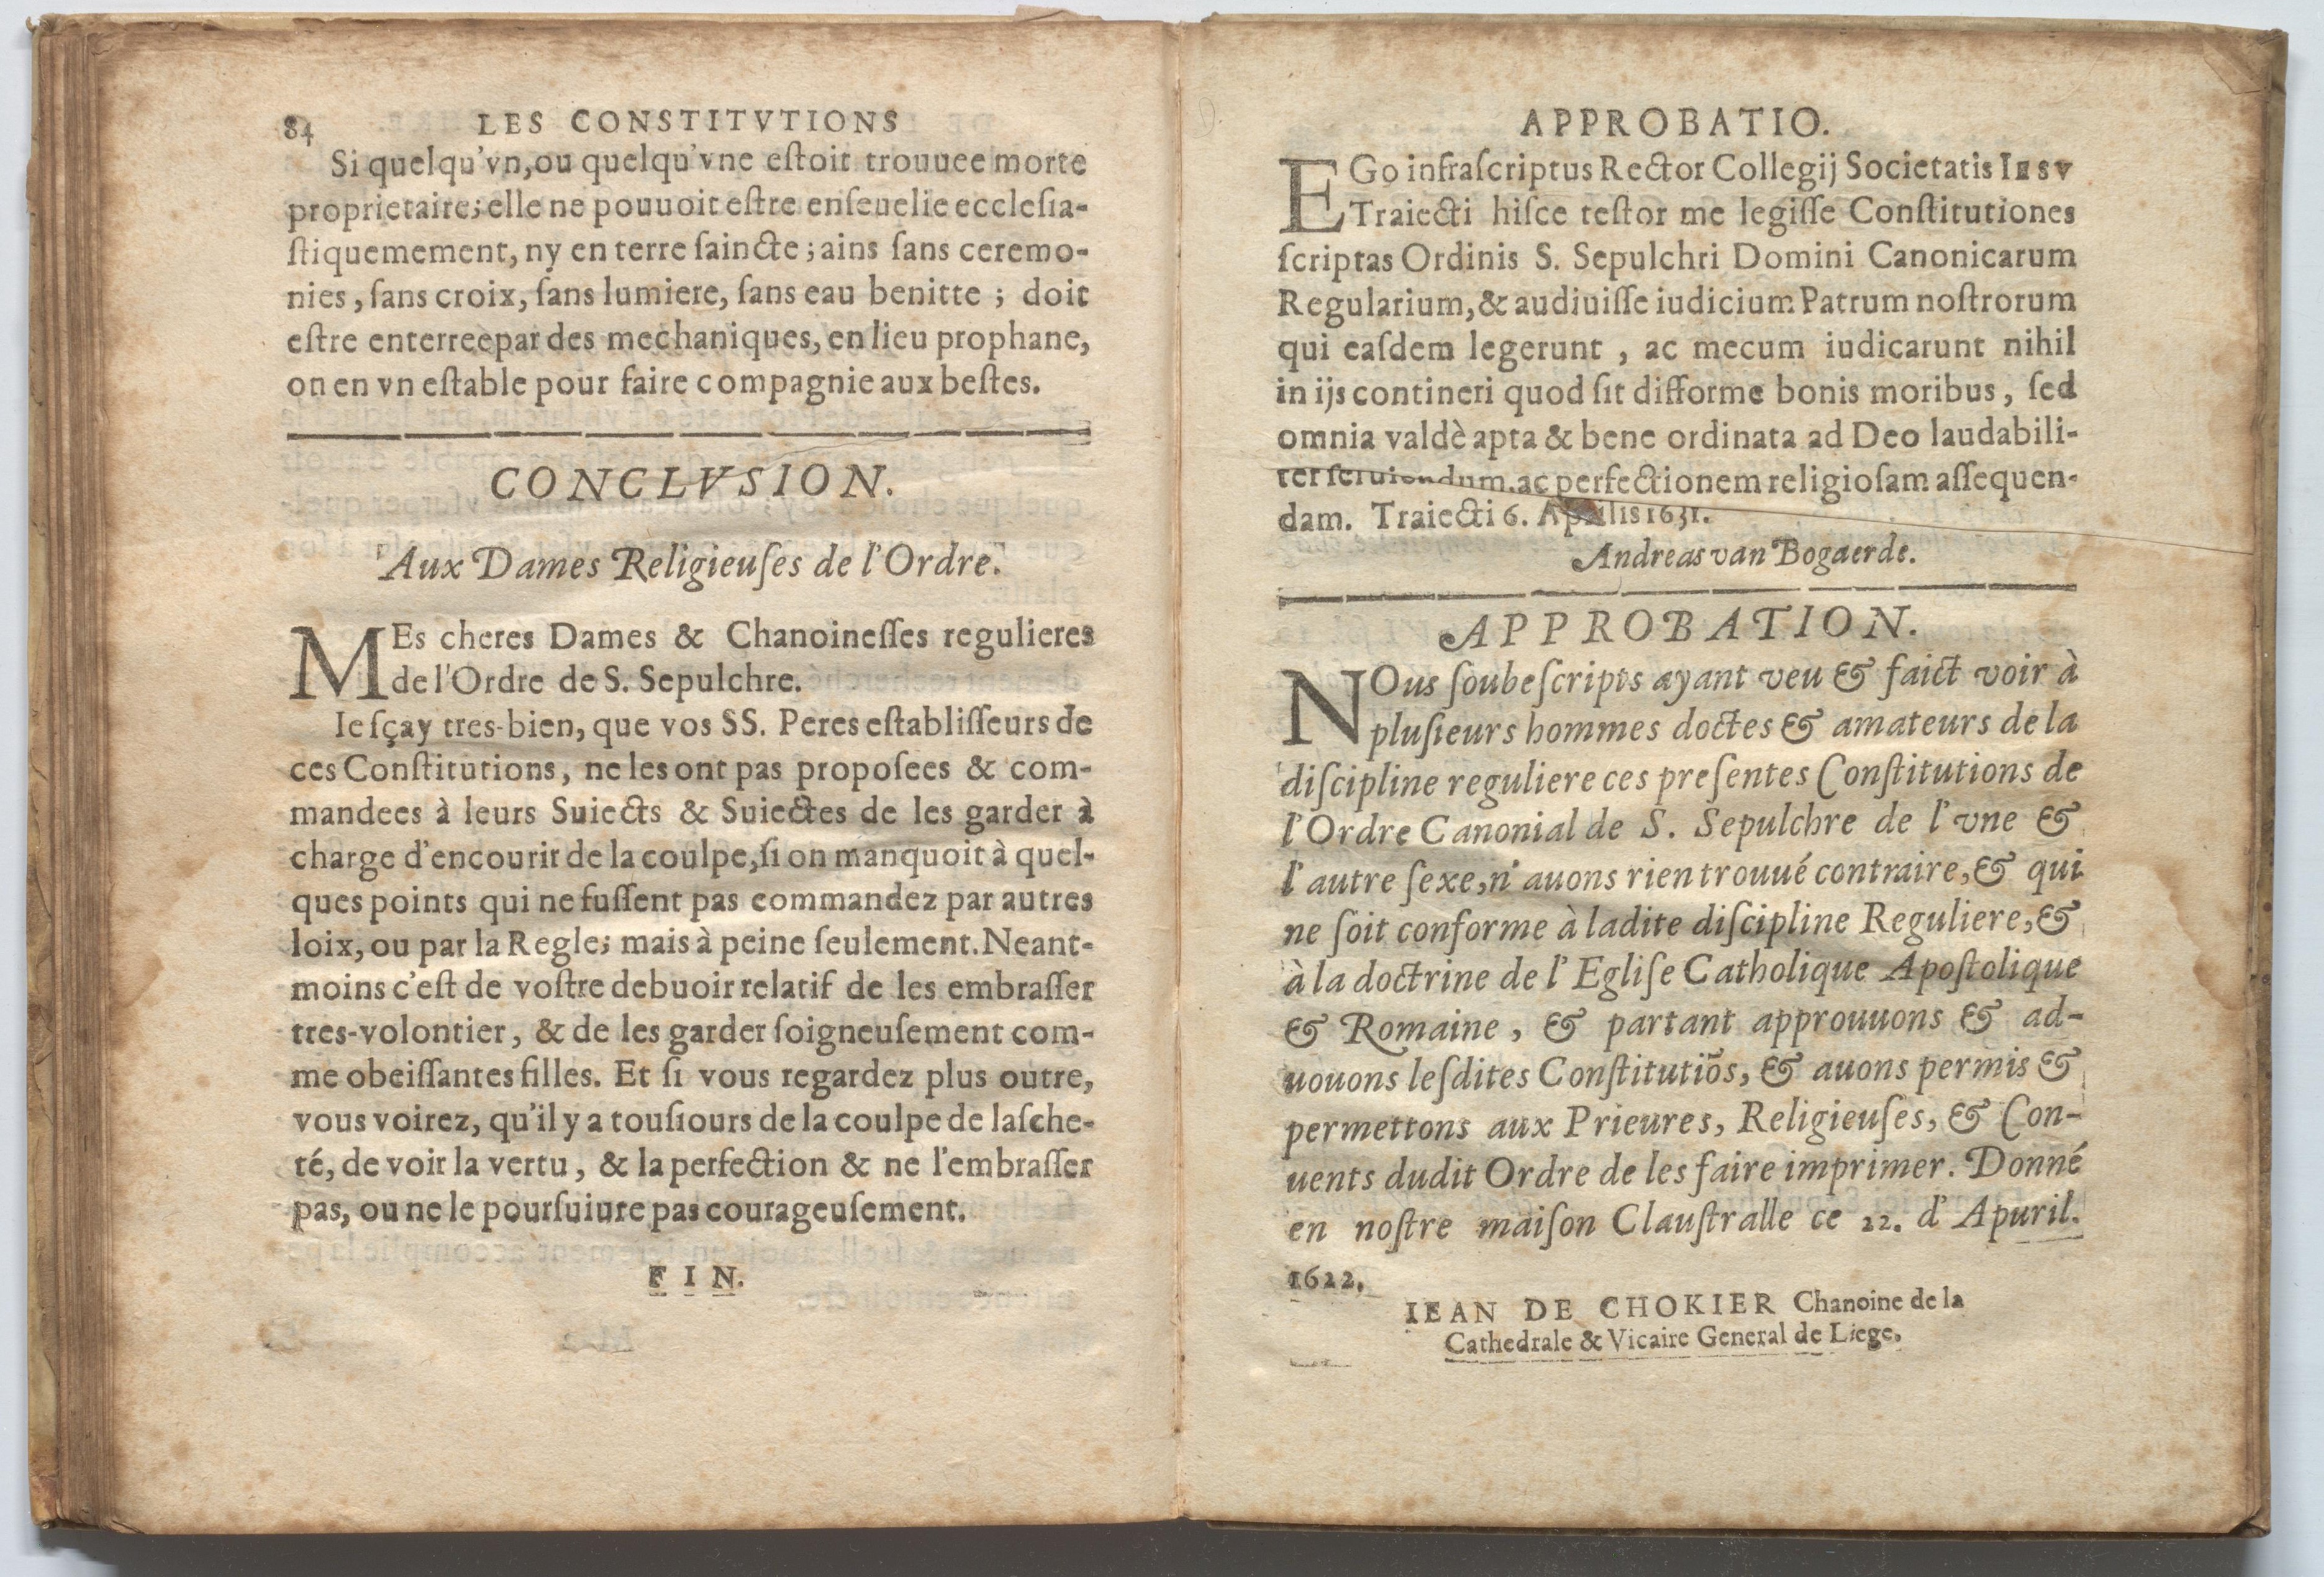 84 LES CONSTITVTIONS
Si quelqu'vn, ou quelqu'vne eſtoit trouuee morte
proprietaire; elle ne pouuoit eſtre enſeuelie eccleſia-
ſtiquemement, ny en terre ſaincte; ains ſans ceremo-
nies, ſans croix, ſans lumiere, ſans eau benitte; doit
eſtre enterreepar des mechaniques, en lieu prophane,
on en vn eſtable pour faire compagnie aux beſtes.
CONCLVSION.
Aux Dames Religieuſes de l'Ordre.
MEs cheres Dames & Chanoineſſes regulieres
de l'Ordre de S. Sepulchre.
Ie ſçay tres-bien, que vos SS. Peres eſtabliſſeurs de
ces Conſtitutions, ne les ont pas propoſees & com-
mandees à leurs Suiects & Suiectes de les garder à
charge d'encourir de la coulpe, ſi on manquoit à quel-
ques points qui ne fuſſent pas commandez par autres
loix, ou par la Regle; mais à peine ſeulement. Neant-
moins c'eſt de voſtre debuoir relatif de les embraſſer
tres-volontier, & de les garder ſoigneuſement com-
me obeiſſantes filles. Et ſi vous regardez plus outre,
vous voirez, qu'il y a touſiours de la coulpe de laſche-
té, de voir la vertu, & la perfection & ne l'embraſſer
pas, ou ne le pourſuiure pas courageuſement.
FIN.
APPROBATIO.
EGo infraſcriptus Rector Collegij Societatis IESV
Traiecti hiſce teſtor me legiſſe Conſtitutiones
ſcriptas Ordinis S. Sepulchri Domini Canonicarum
Regularium, & audiuiſſe iudicium Patrum noſtrorum
qui eaſdem legerunt, ac mecum iudicarunt nihil
in ijs contineri quod ſit difforme bonis moribus, ſed
omnia valdè apta & bene ordinata ad Deo laudabili-
ter ſeruiendum, ac perfectionem religioſam aſſequen-
dam. Traiecti 6. Aprilis 1631.
Andreas van Bogaerde.
APPROBATION.
NOus ſoubeſcripts ayant veu & faict voir à
pluſieurs hommes doctes & amateurs de la
diſcipline reguliere ces preſentes Conſtitutions de
l'Ordre Canonial de S. Sepulchre de l'vne &
l'autre ſexe, n'auons rien trouué contraire, & qui
ne ſoit conforme à ladite diſcipline Reguliere, &
à la doctrine de l'Egliſe Catholique Apoſtolique
& Romaine, & partant approuuons & ad-
uouons leſdites Conſtitutiõs, & auons permis &
permettons aux Prieures, Religieuſes, & Con-
uents dudit Ordre de les faire imprimer. Donné
en noſtre maiſon Clauſtralle ce 22. d'Apuril.
1622.
IEAN DE CHOKIER Chanoine de la
Cathedrale & Vicaire General de Liege.